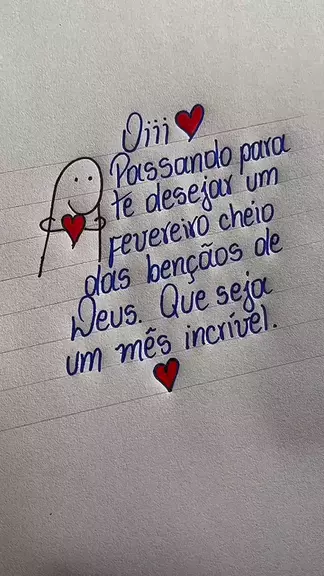 Oiii
Passando para
te desejar um
Fevereiro cheio
das bençãos de
Deus. Que seja
um mês incrível.